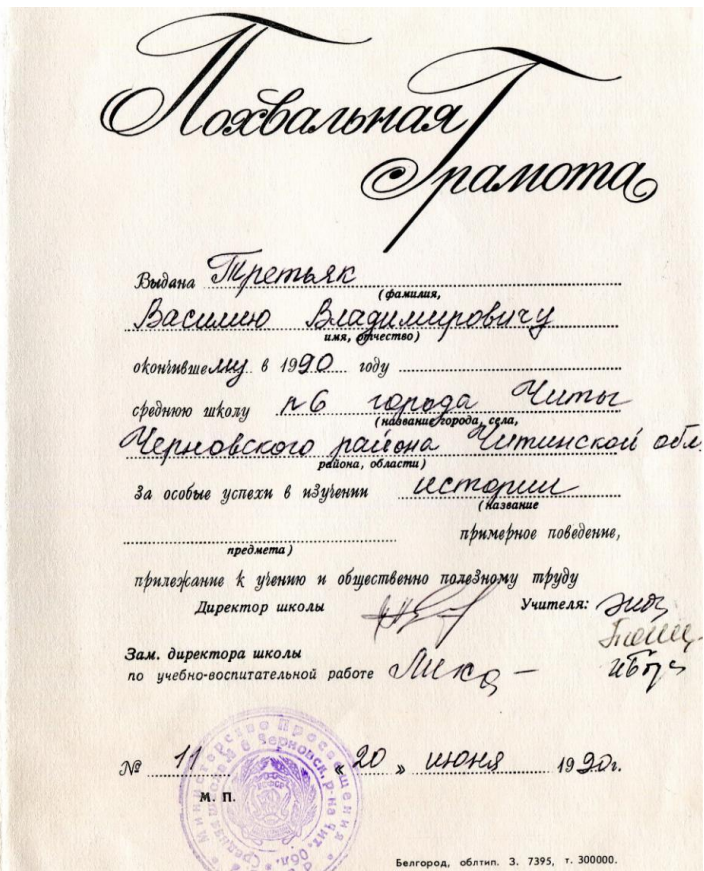 Похвальная
Грамота
Выдана Третьяк
(фамилия,
Василию Владимировичу
имя, отчество)
окончившему в 1990 году
среднюю школу №6 города Читы
(название города, села,
Черновского района Читинской обл.
района, области)
За особые успехи в изучении истории
(название
примерное поведение,
предмета)
прилежание к учению и общественно полезному труду
Директор школы Учителя:
Зам. директора школы
по учебно-воспитательной работе
№ 11 « 20 » июня 1990г.
М. П.
Министерство Просвещения
Средняя школа № 6 Черновск. р-на Чит. обл.
РСФСР
Белгород, облтип. З. 7395, т. 300000.